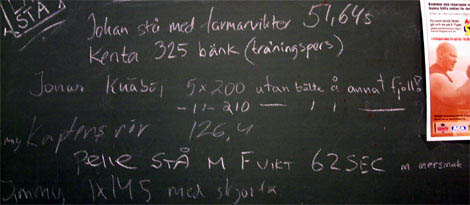 STÅ
Johan stå med farmarvikter 51,64s
Kenta 325 bänk (träningspers)
Jonas Knäböj 5x200 utan bälte å annat fjoll!
-11-210 — 11 —
Kaptens rör 126,4
Pelle STÅ M FVIKT 62 SEC m mersmak
Jimmy 1x145 med skjorta